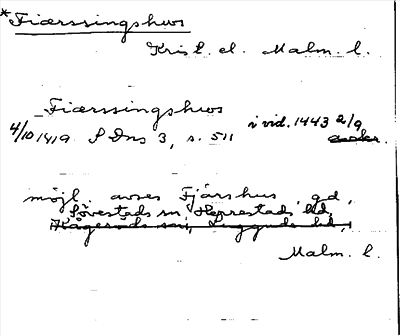 *Fiærssingshws
Krist. el. Malm. l.
_Fiærssingshws
4/10 1419 SDns 3, s. 511 i vid. 1443 2/9
möjl. avses Fjärshus, gd,
Sövestads sn, Herrestads hd,
Kågeröds sn, Luggude hd,
Malm. l.